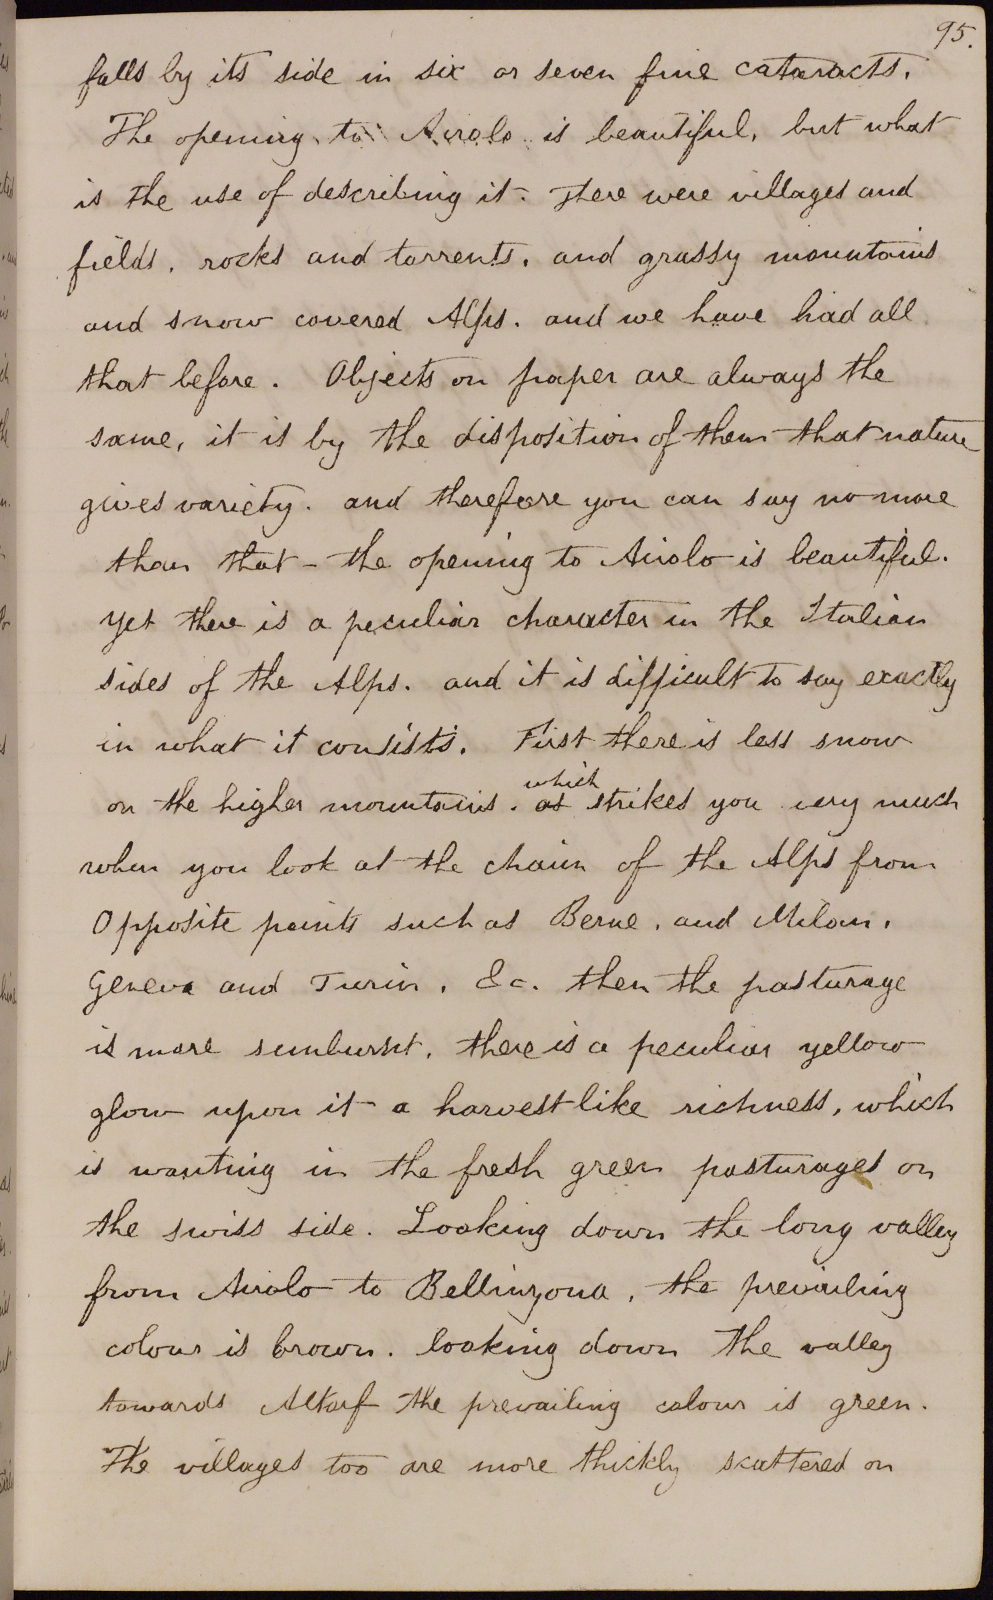 95.
falls by its side in six or seven fine cataracts.
The opening to Airolo is beautiful, but what
is the use of describing it. There were villages and
fields, rocks and torrents, and grassy mountains
and snow covered Alps. and we have had all
that before. Objects on paper are always the
same, it is by the disposition of them that nature
gives variety. and therefore you can say no more
than that - the opening to Airolo is beautiful.
Yet there is a peculiar character in the Italian
sides of the Alps. and it is difficult to say exactly
in what it consists. First there is less snow
which
on the higher mountains. as strikes you very much
when you look at the chain of the Alps from
Opposite points such as Berne, and Milan,
Geneva and Turin, &c. then the pasturage
is more sunburnt, there is a peculiar yellow
glow upon it a harvest like richness, which
is wanting in the fresh green pasturages on
the swiss side. Looking down the long valley
from Airolo to Bellinzona, the prevailing
colour is brown. looking down the valley
towards Altorf the prevailing colour is green.
The villages too are more thickly scattered on